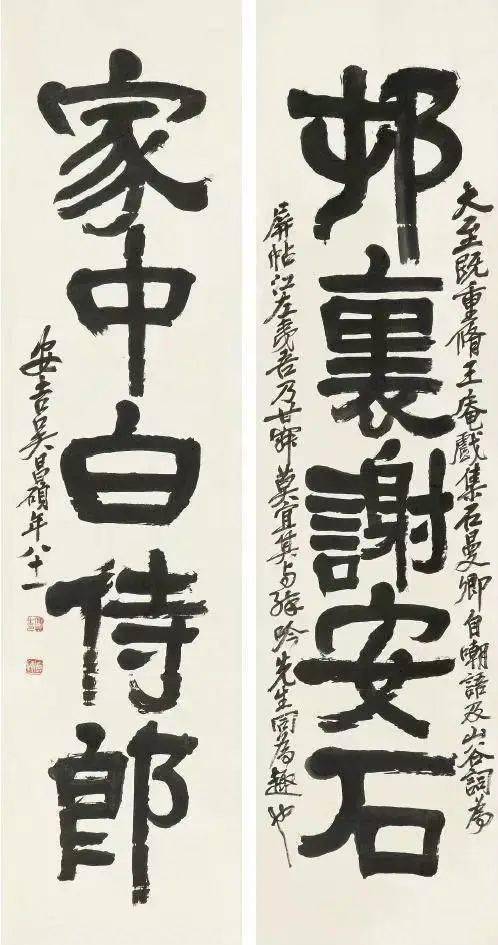 邨裏謝安石
大至既重脩王庵戲集石曼卿自嘲語及山谷詞為
屏帖江左夷吾乃甘莫宜其与吟先生同為趣也
家中白侍郎
安吉吳昌碩年八十一